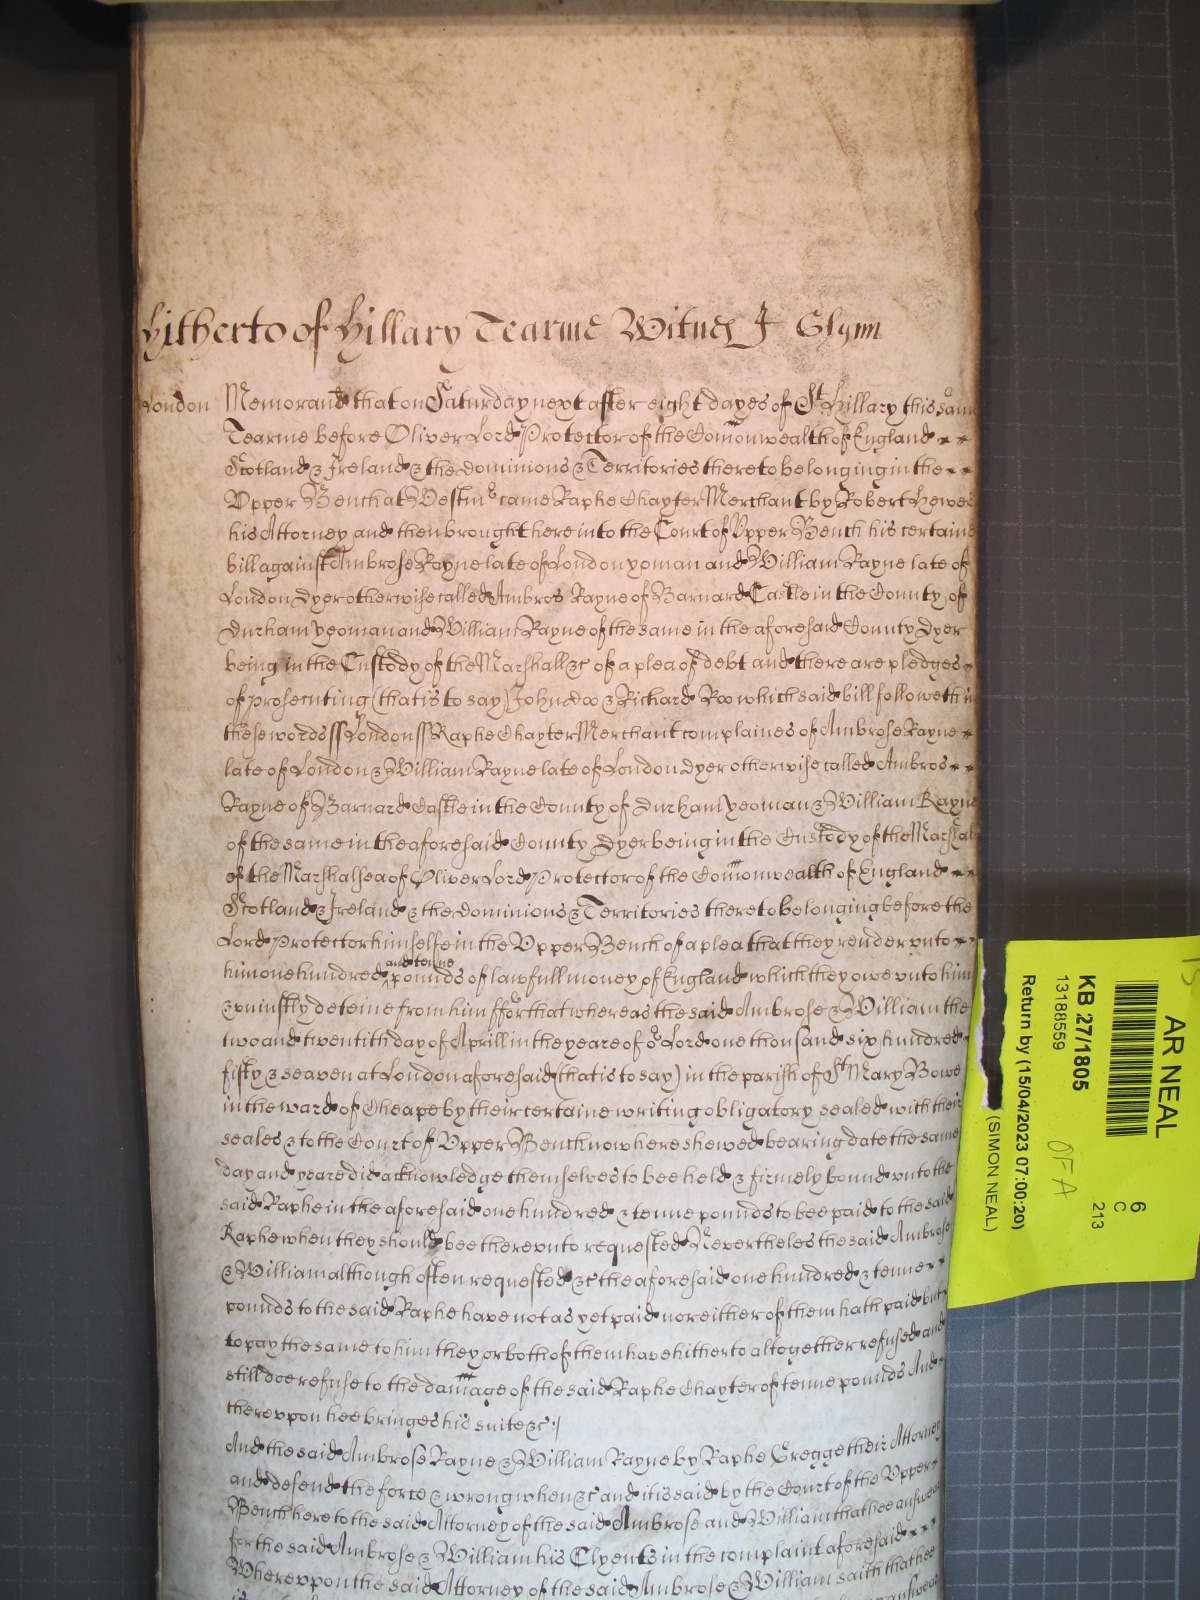 hitherto of Hillary Tearme Witnes J Glynn
London Memorand that on Saturday next after eight dayes of St Hillary this same
Tearme before Oliver Lord Protector of the Comonwealth of England
Scotland & Ireland & the dominions & Territories thereto belonging in the
Upper Bench at Westmr came Raphe Chayter Merchant by Robert Hewes
his Attorney and then brought here into the Court of Upper Bench his certaine
bill against Ambrose Rayne late of London yoman and William Rayne late of
London Dyer otherwise called Ambros Rayne of Barnard Castle in the County of
Durham yeoman and William Rayne of the same in the aforesaid County Dyer
being in the Custody of the Marshall &c of a plea of debt and there are pledges
of prosecuting (that is to say) John doo & Richard Roo which said bill followeth in
these words ss London ss Raphe Chayter Merchant complaines of Ambrose Rayne
late of London & William Rayne late of London dyer otherwise called Ambros
Rayne of Barnard Castle in the County of durham yeoman & William Rayne
of the same in the aforesaid County Dyer being in the Custody of the Marshal
of the Marshalsea of Oliver Lord Protector of the Comonwealth of England
Scotland & Ireland & the dominions & Territories thereto belonging before the
Lord Protector himselfe in the Upper Bench of a plea that they render unto
him one hundred and tenne pounds of lawfull money of England which they owe unto him
& uniustly deteine from him ffor that whereas the said Ambrose & William the
two and twentith day of Aprill in the yeare of or Lord one thousand six hundred
fifty & seaven at London aforesaid (that is to say) in the parish of St Mary Bowe
in the ward of Cheape by their certaine writing obligatory sealed with their
seales & to the Court of Upper Bench now here shewed bearing date the same
day and yeare did acknowledge themselves to bee held & firmely bound unto the
said Raphe in the aforesaid one hundred & tenne pounds to bee paid to the said
Raphe when they should bee thereunto requested Neverthelesse the said Ambrose
& William although often requested &c the aforesaid one hundred & tenne
pounds to the said Raphe have not as yet paid nor either of them hath paid but
to pay the same to him they or both of them have hitherto altogether refused and
still doe refuse to the damage of the said Raphe Chayter of tenne pounds And
thereupon hee bringes his suite &c
And the said Ambrose Rayne & William Rayne by Raphe Gregge their Attorney
and defend the force & wrong when &c and it is said by the Court of the Upper
Bench here to the said Attorney of the said Ambrose and William that hee answeare
for the said Ambrose & William his Clyents in the complaint aforesaid
Whereupon the said Attorney of the said Ambrose & William saith that hee
is
AR NEAL
KB 27/1805
13188559
Return by (15/04/2023 07:00:20)
(SIMON NEAL)
6
C
213
OFA